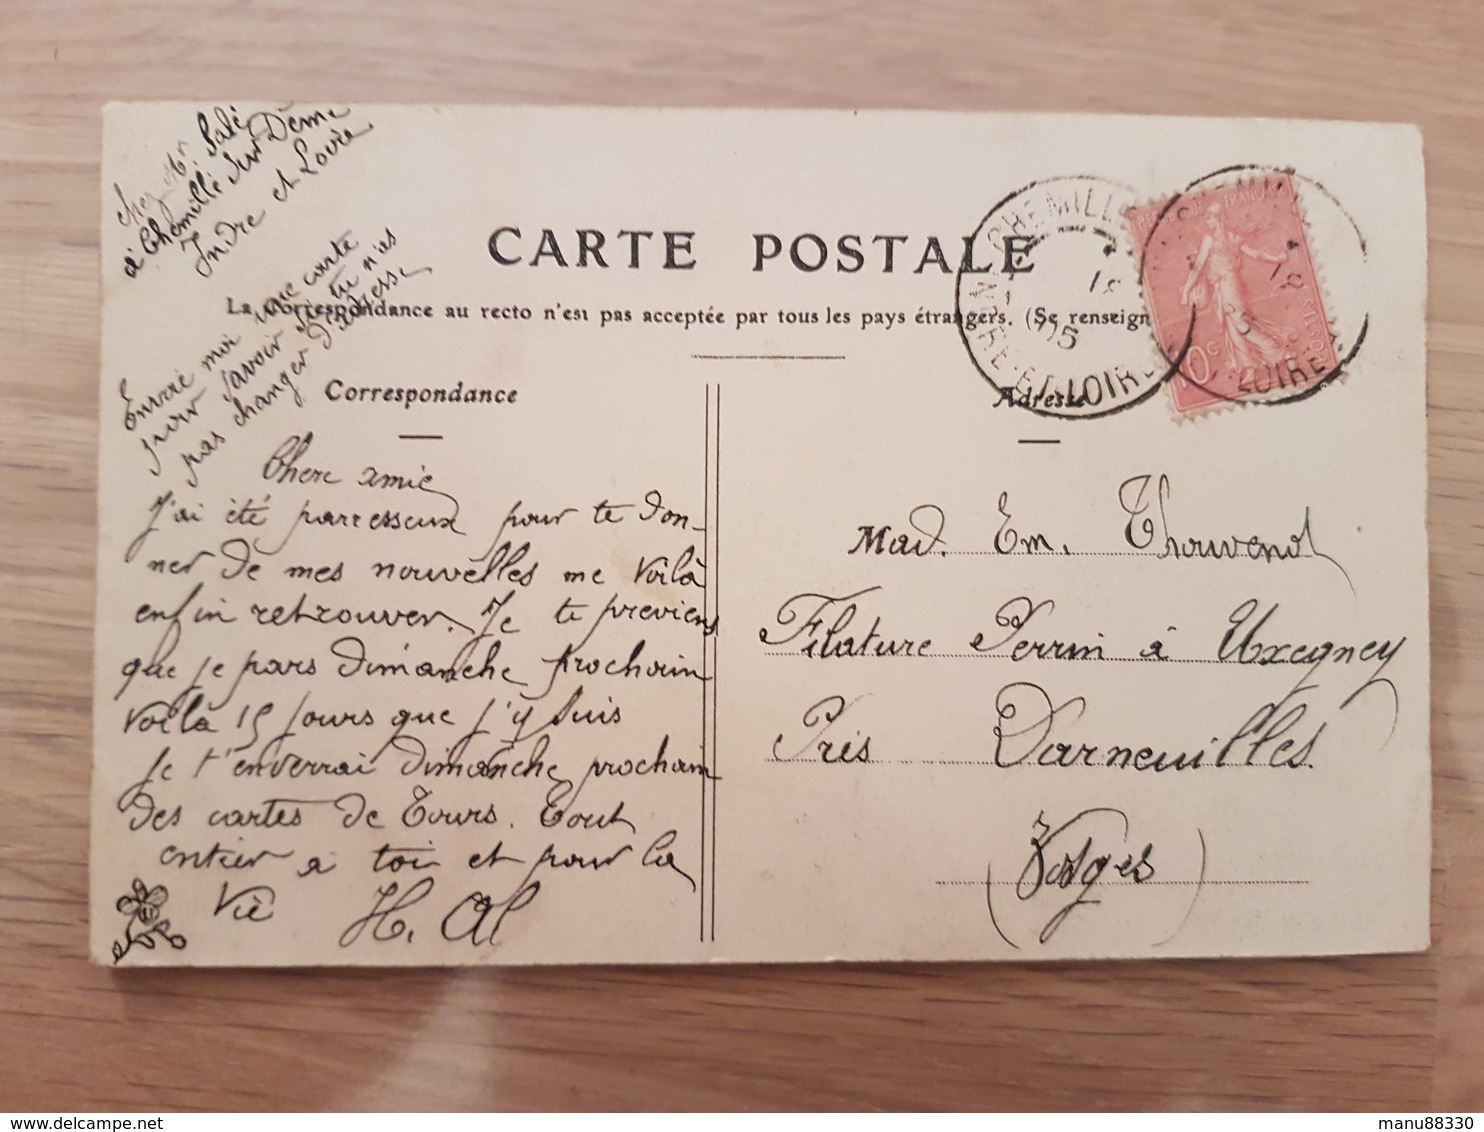 chez Mr. Salé
à Chemillé sur Dême
Indre et Loire
CARTE POSTALE
La Correspondance au recto n'est pas acceptée par tous les pays étrangers. (Se renseign
Envoie moi une carte
pour savoir si tu n'as
pas changer d'adresse
Correspondance
Chere amie
J'ai été parresseux pour te don-
ner de mes nouvelles me voilà
enfin retrouver. Je te previens
que je pars dimanche prochain
voilà 15 jours que j'y suis
je t'enverrai dimanche prochain
des cartes de Tours. Tout
entier à toi et pour la
vie
H. Al
Adresse
Mad. Em. Thouvenot
Filature Perrin à Uxegney
Près Darneuilles.
(Vosges)
CHEMILLÉ
18
05
INDRE-ET-LOIRE
REPUBLIQUE FRANÇAISE
POSTES
10c
18
LOIRE
delcampe.net
manu88330